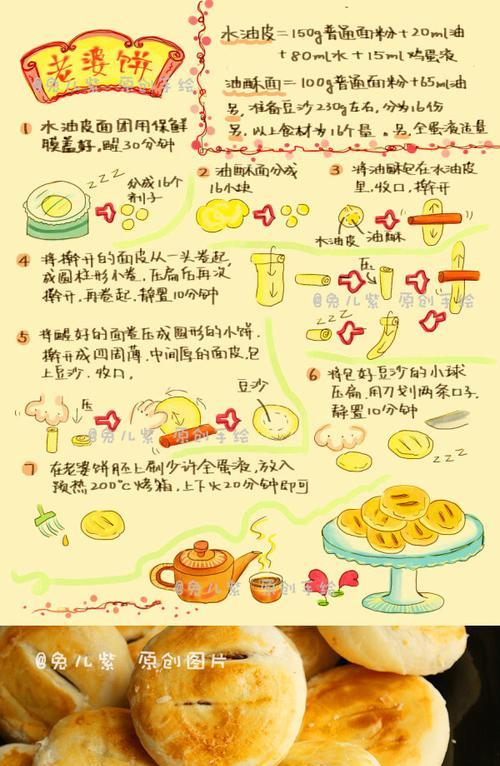 老婆饼
@兔儿紫 原创手绘
水油皮=150g普通面粉+20ml油
+80ml水+15ml鸡蛋液
油酥面=100g普通面粉+65ml油
另,准备豆沙230g左右,分为16份
另,以上食材为16个量。另,全蛋液适量
1 水油皮面团用保鲜
膜盖好,醒30分钟
zzz
分成16个
剂子
2 油酥面分成
16小块
3 将油酥包在水油皮
里,收口,擀开
水油皮 油酥
4 将擀开的面皮从一头卷起,
成圆柱形小卷,压扁后再次
擀开,再卷起,静置10分钟
压
@兔儿紫 原创手绘
zzz
5 将醒好的面卷压成圆形的小饼,
擀开成四周薄,中间厚的面皮,包
上豆沙,收口。
压
豆沙
@兔儿紫 原创手绘
6 将包好豆沙的小球
压扁,用刀划两条口子,
静置10分钟
zzz
7 在老婆饼胚上刷少许全蛋液,放入
预热200℃烤箱,上下火20分钟即可
@兔儿紫 原创手绘
@兔儿紫 原创图片